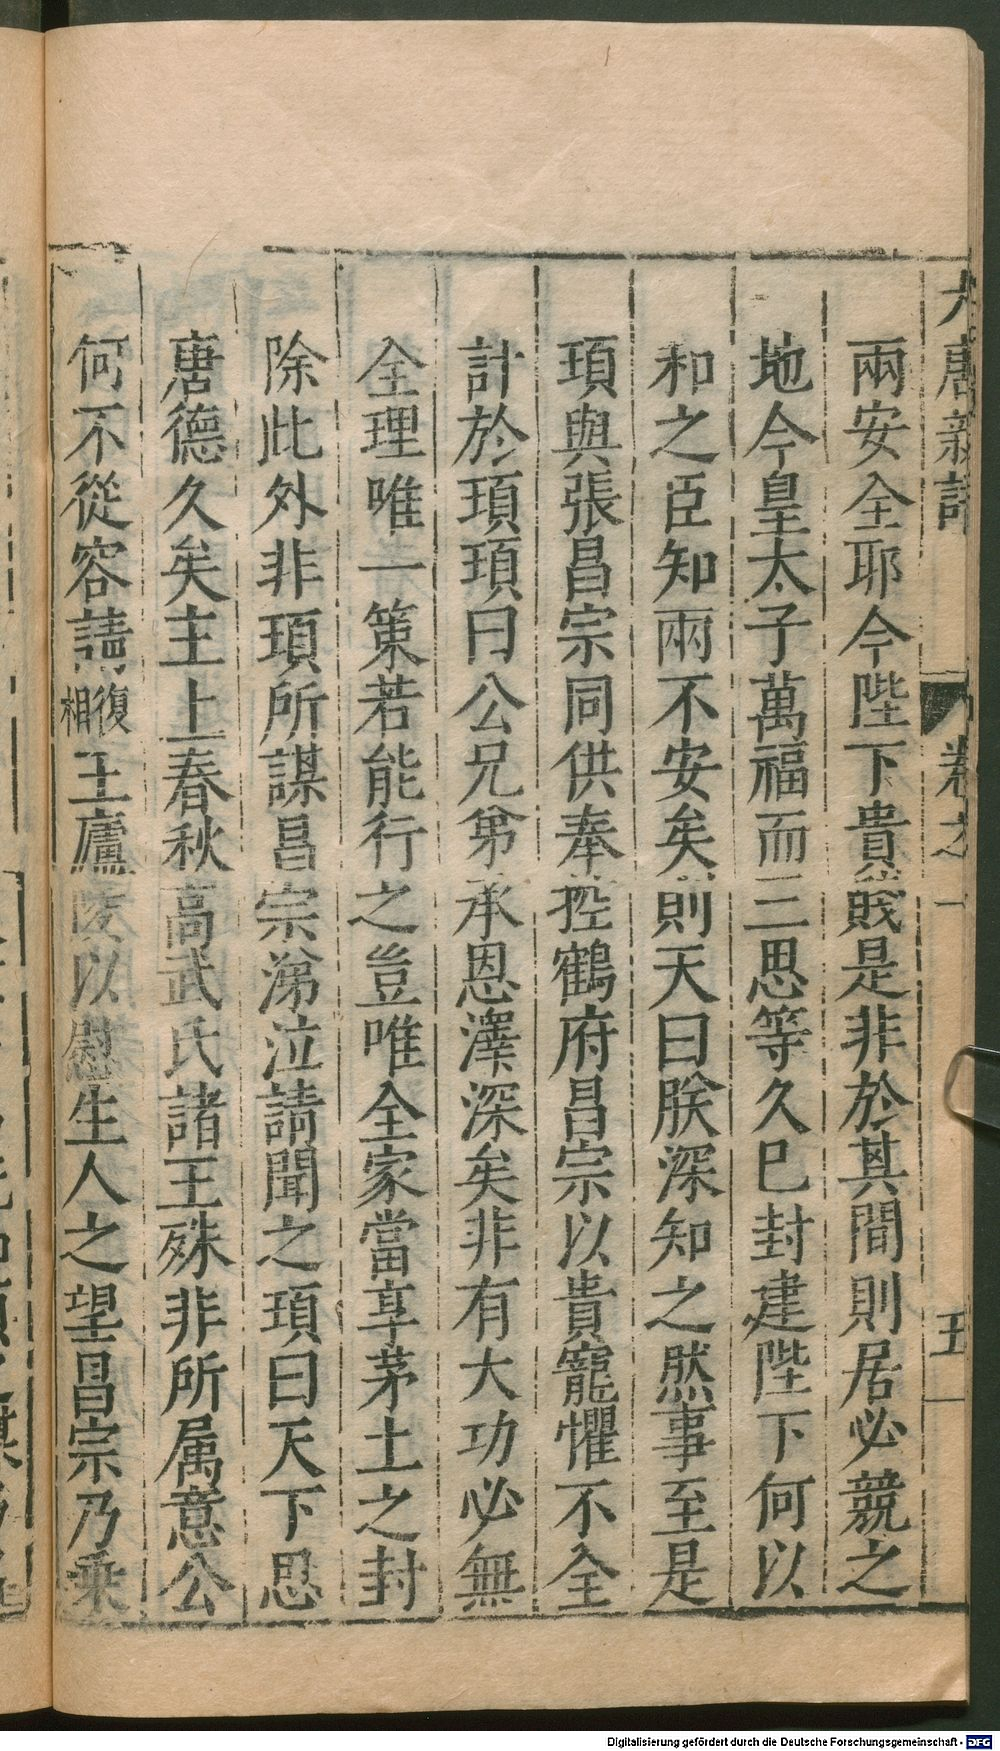 大唐新語
卷之一
五
兩安全耶今陛下貴賤是非於其間則居必競之
地今皇太子萬福而三思等久已封建陛下何以
和之臣知兩不安矣則天曰朕深知之然事至是
頊與張昌宗同供奉控鶴府昌宗以貴寵懼不全
計於頊頊曰公兄弟承恩澤深矣非有大功必無
全理唯一策若能行之豈唯全家當享茅土之封
除此外非頊所謀昌宗涕泣請聞之頊曰天下思
唐德久矣主上春秋高武氏諸王殊非所属意公
何不從容請復相王廬陵以慰生人之望昌宗乃乗
Digitalisierung gefördert durch die Deutsche Forschungsgemeinschaft - DFG